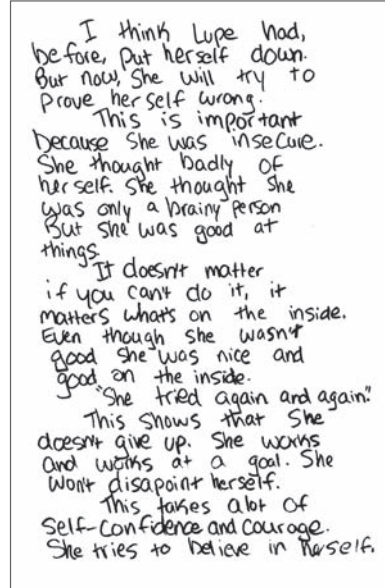 I think Lupe had,
before, put herself down.
But now, She will try to
prove her self wrong.
This is important
because she was insecure.
She thought badly of
her self. She thought She
was only a brainy person
But she was good at
things.
It doesn't matter
if you can't do it, it
matters what's on the inside.
Even though she wasn't
good she was nice and
good on the inside.
"She tried again and again."
This shows that She
doesn't give up. She works
and works at a goal. She
won't disapoint herself.
This takes alot of
self-confidence and courage.
She tries to believe in herself.